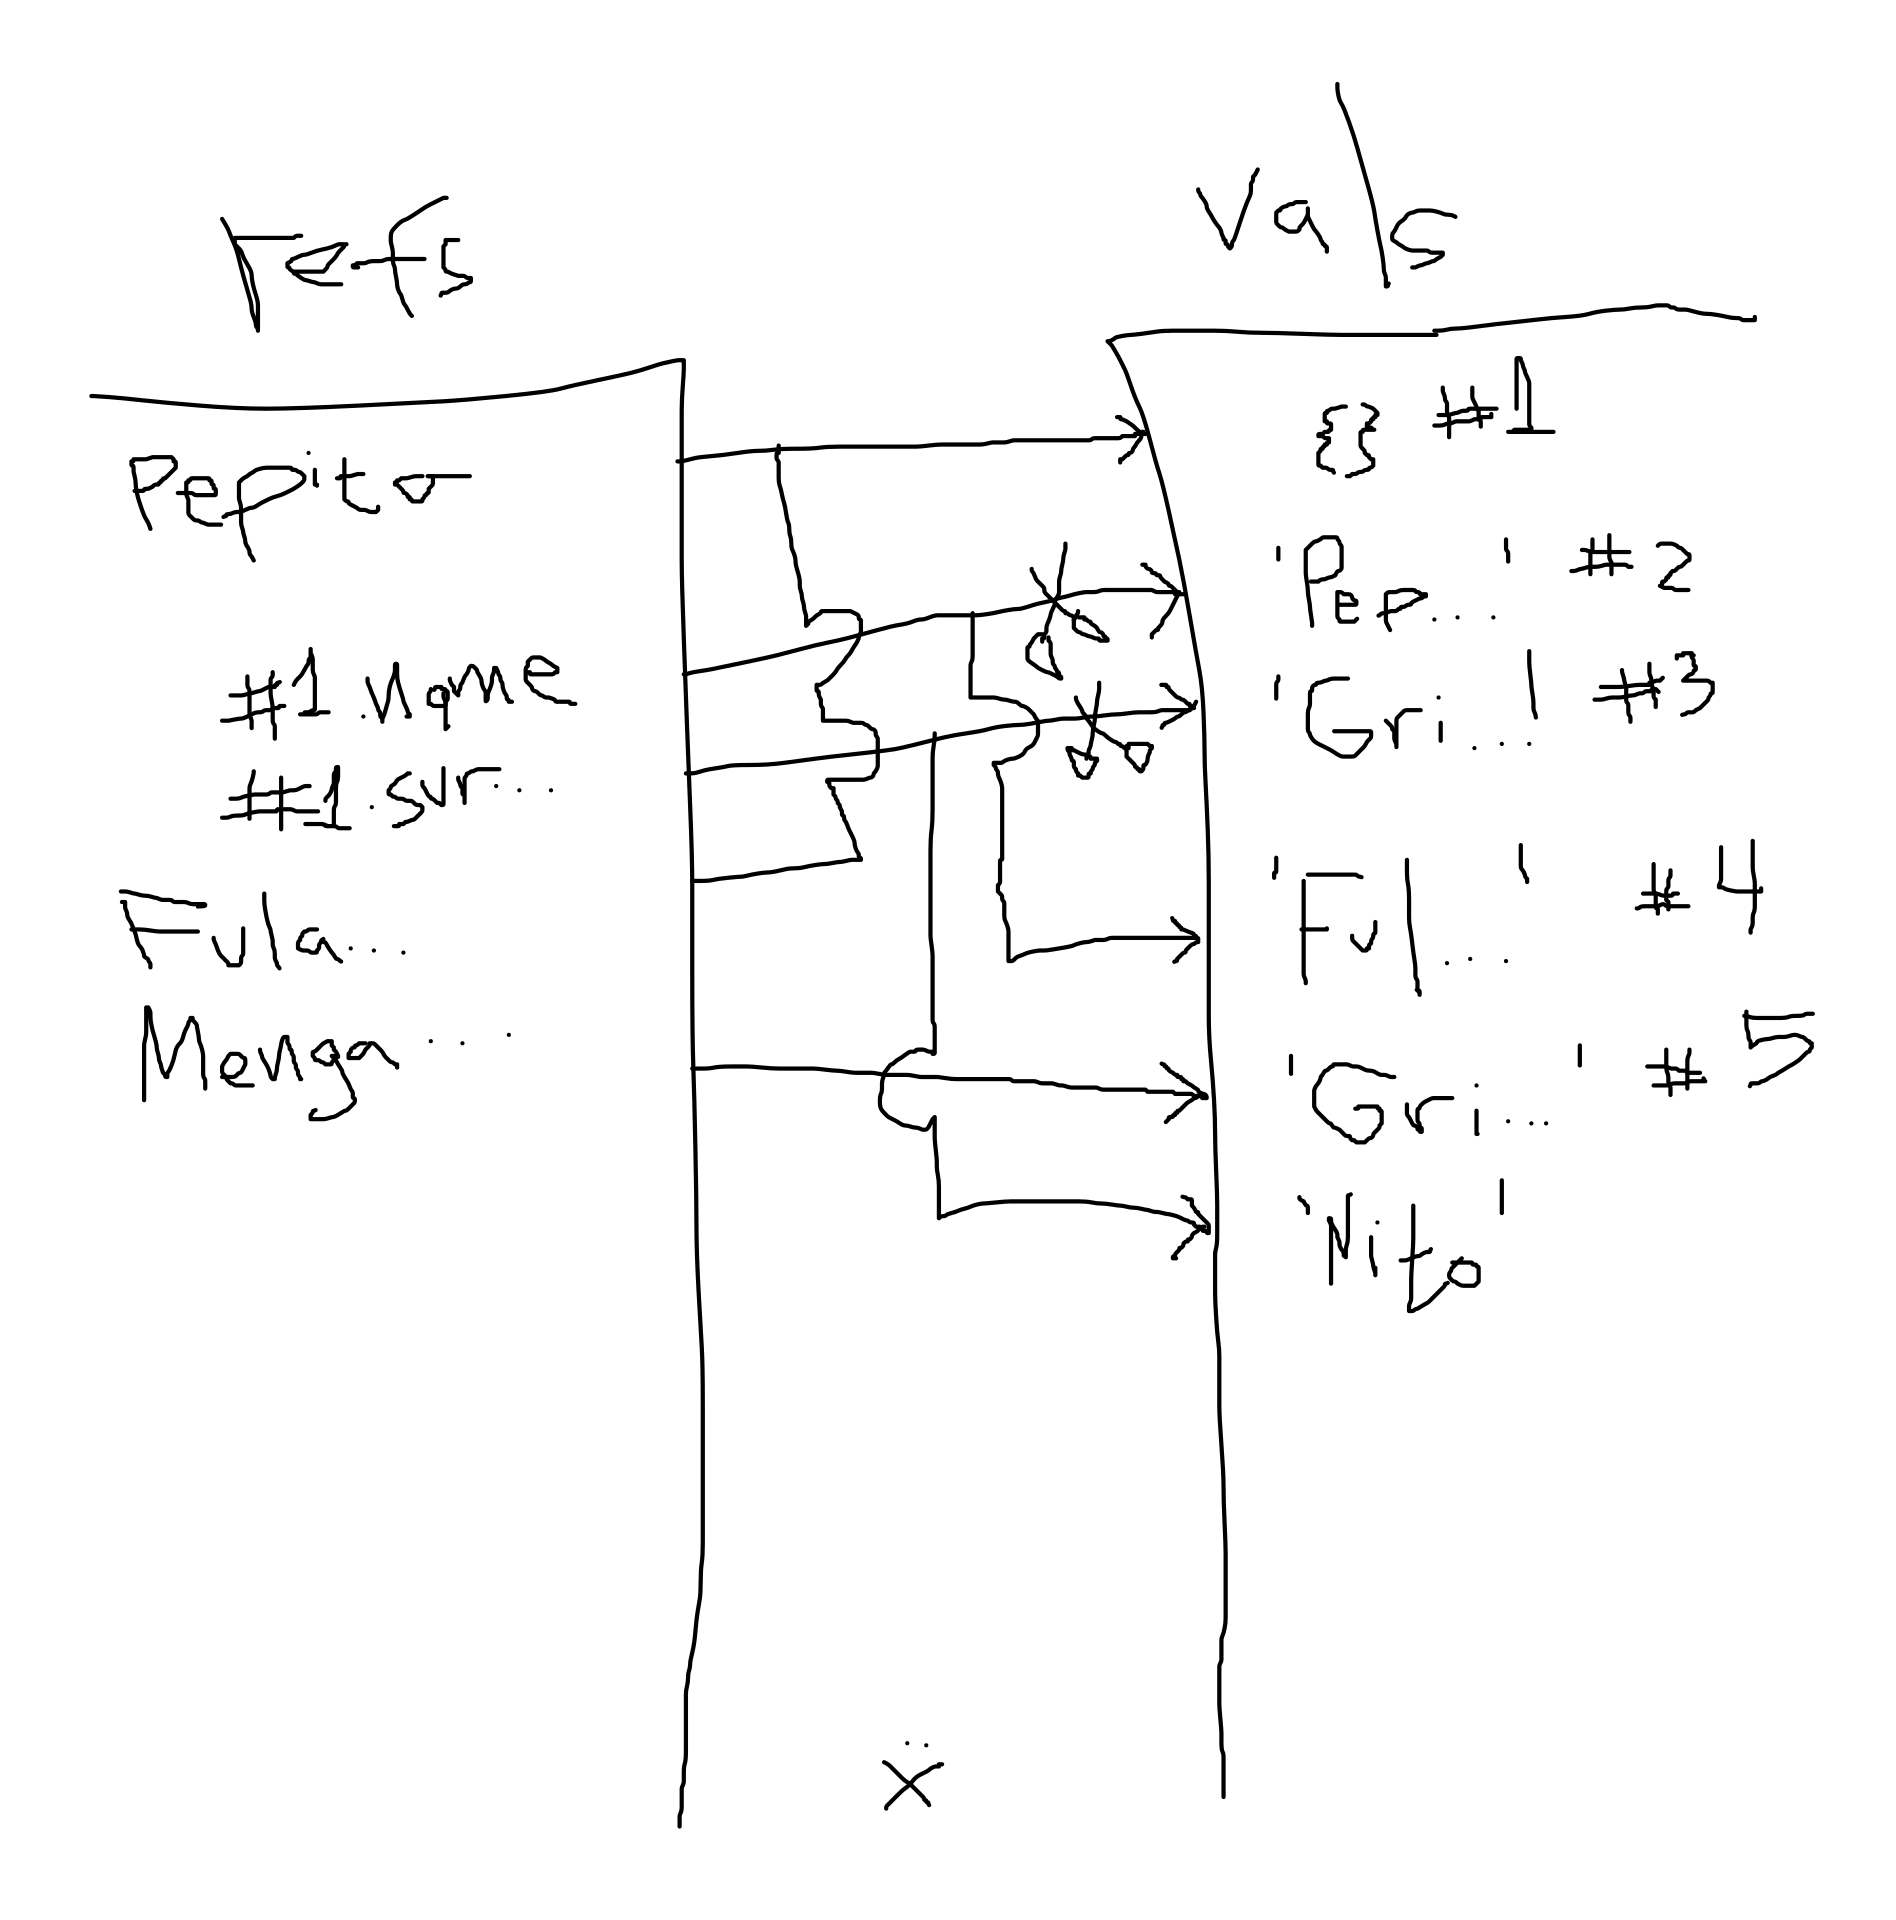 refs
Vals
Pepito
#1.name
#1.sur...
Fula...
Manga...
{} #1
'Pep...' #2
'Gri...' #3
'Ful...' #4
'Gri...' #5
'Nito'